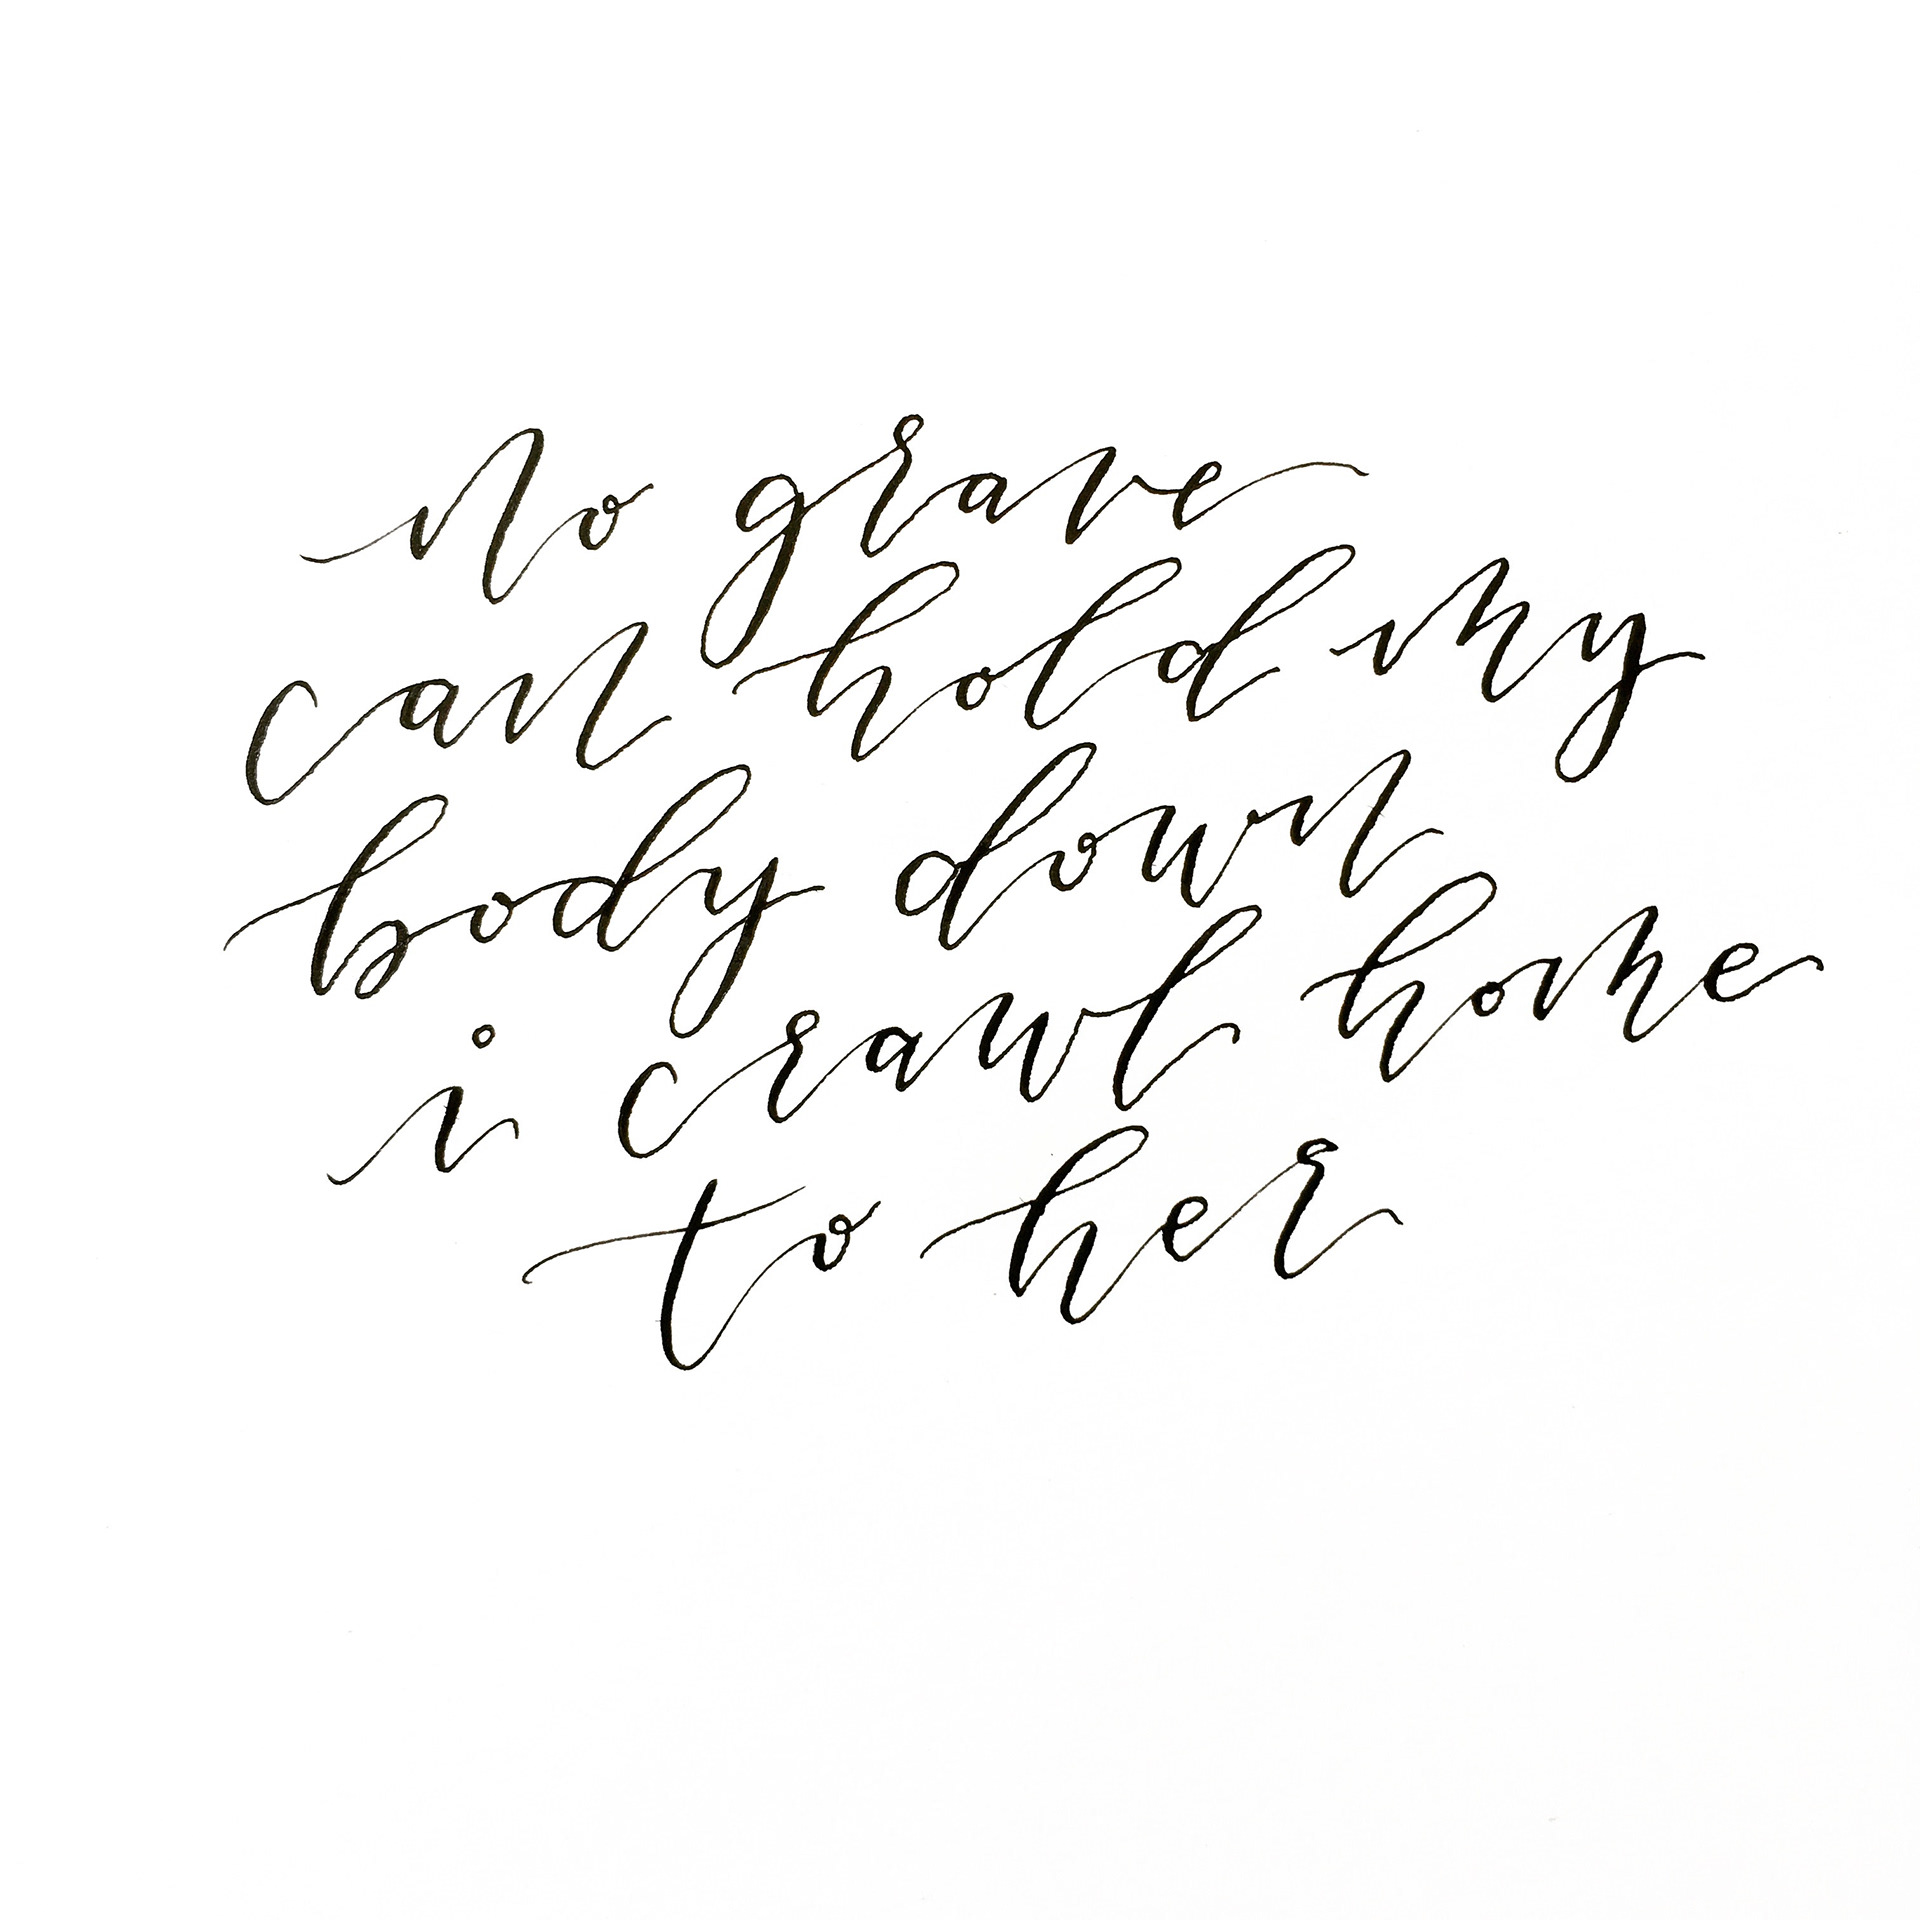 no grave
can hold my
body down
i crawl home
to her